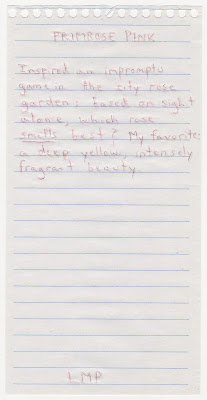 PRIMROSE PINK
Inspired an impromptu
game in the city rose
garden: based on sight
alone, which rose
smells best? My favorite:
a deep yellow, intensely
fragrant beauty.
LMP